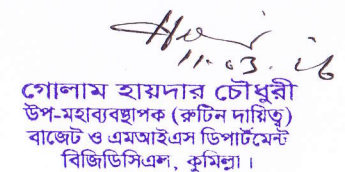 11.03.
গোলাম হায়দার চৌধুরী
উপ-মহাব্যবস্থাপক (রুটিন দায়িত্ব)
বাজেট ও এমআইএস ডিপার্টমেন্ট
বিজিডিসিএল, কুমিল্লা।